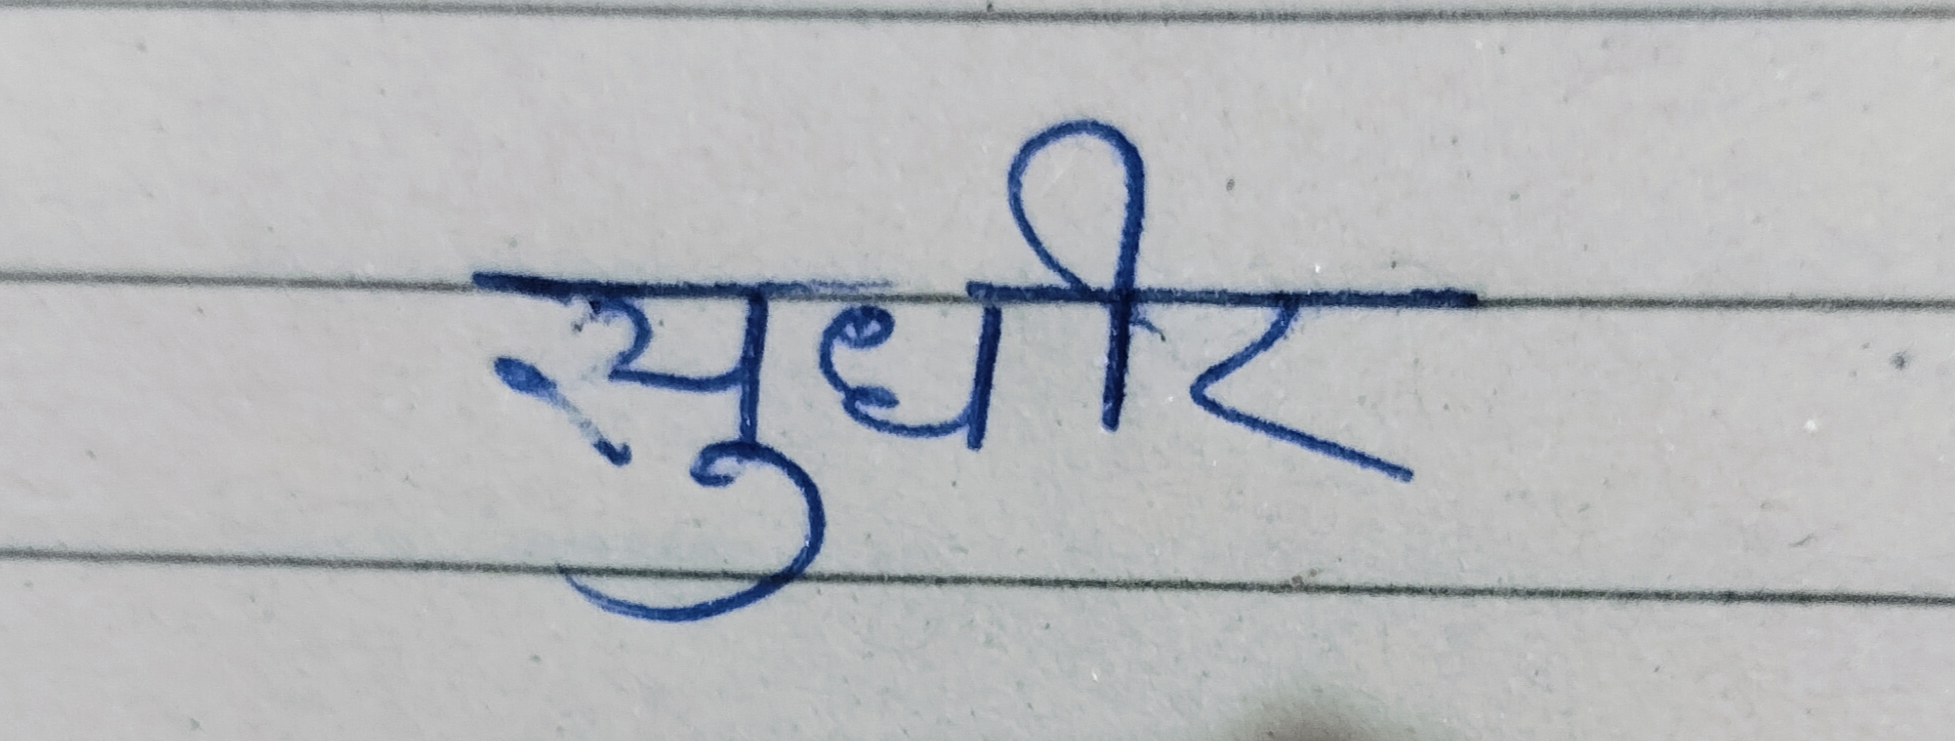 सुधीर